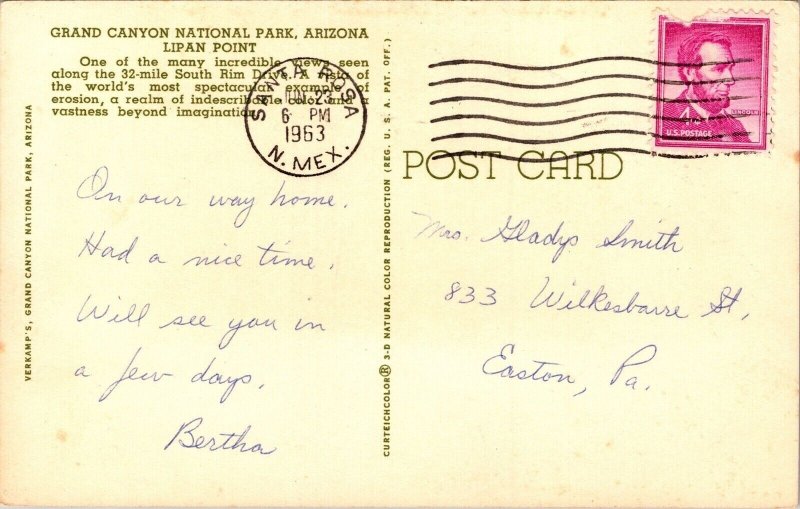 GRAND CANYON NATIONAL PARK, ARIZONA
LIPAN POINT
One of the many incredible views seen
along the 32-mile South Rim Drive. A vista of
the world's most spectacular example of
erosion, a realm of indescribable color and a
vastness beyond imagination.
SANTA ROSA
JUN 23
6 PM
1963
N. MEX.
LINCOLN
U.S. POSTAGE
POST CARD
On our way home.
Had a nice time.
Will see you in
a few days.
Bertha
Mrs. Gladys Smith
833 Wilkesbarre St,
Easton, Pa.
VERKAMP'S, GRAND CANYON NATIONAL PARK, ARIZONA
CURTEICHCOLOR® 3-D NATURAL COLOR REPRODUCTION (REG. U. S. A. PAT. OFF.)